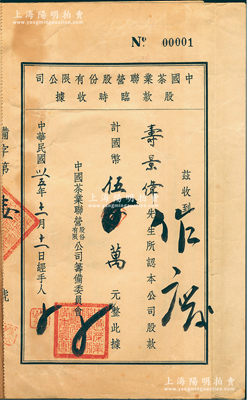 上海陽明拍賣
Nº 00001
司公限有份股營聯業茶國中
據收時臨款股
茲收到
壽景偉先生所認本公司股款
計國幣伍 萬元整此據
中國茶業聯營股份有限公司籌備委員會
中華民國卅五年十一月十一日經手人
作廢
備字第
號
上海陽明拍賣